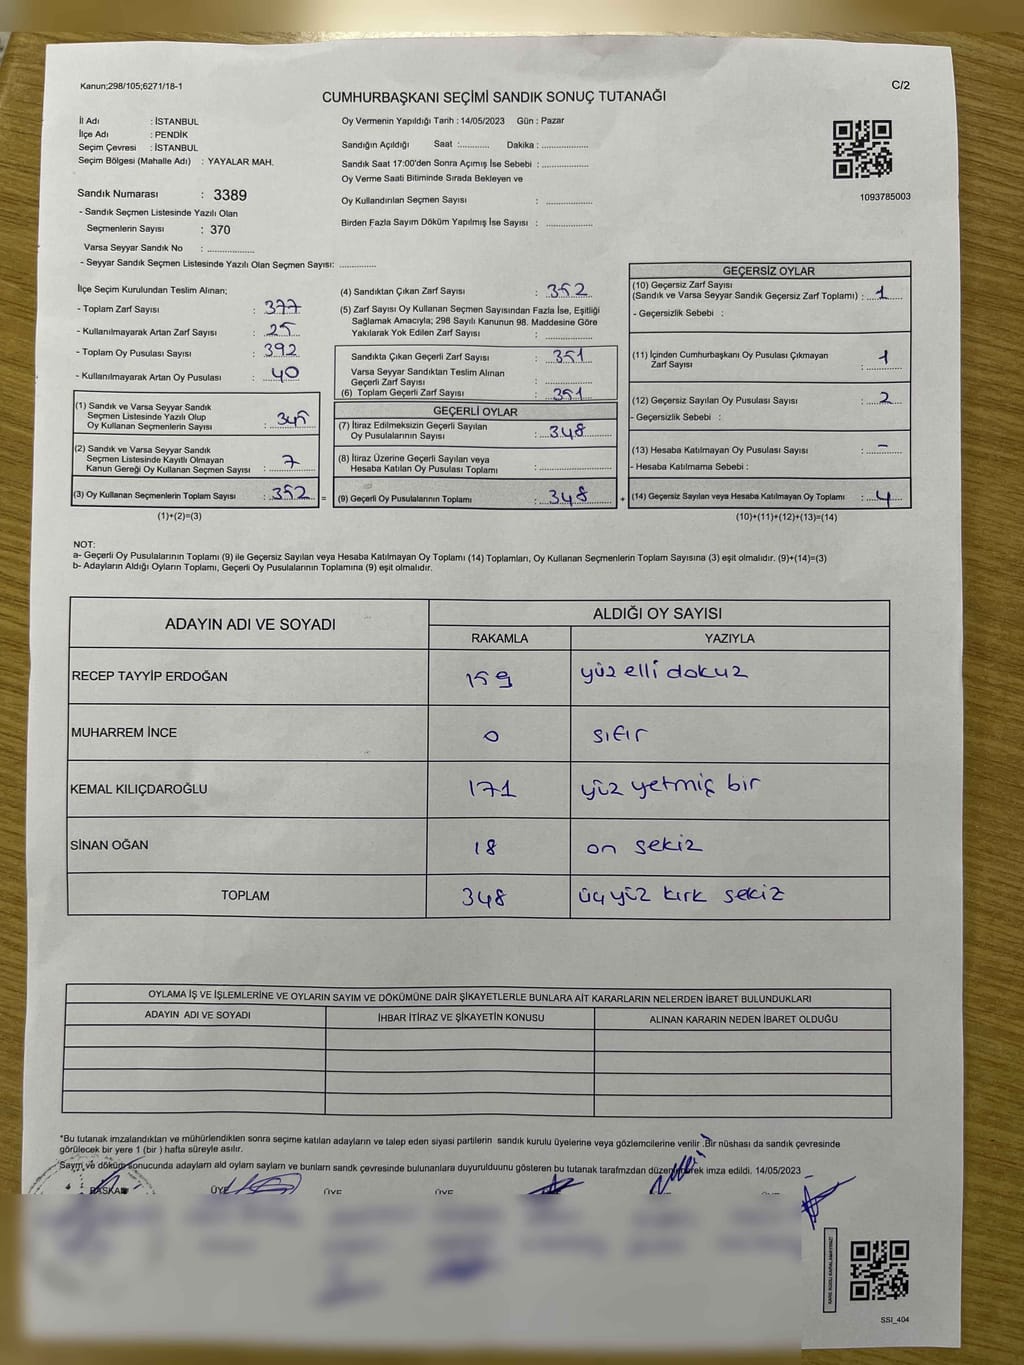 Kanun;298/105;6271/18-1
C/2
CUMHURBAŞKANI SEÇİMİ SANDIK SONUÇ TUTANAĞI
İl Adı : İSTANBUL
İlçe Adı : PENDİK
Seçim Çevresi : İSTANBUL
Seçim Bölgesi (Mahalle Adı) : YAYALAR MAH.
Sandık Numarası : 3389
- Sandık Seçmen Listesinde Yazılı Olan
Seçmenlerin Sayısı : 370
Varsa Seyyar Sandık No : ..............
- Seyyar Sandık Seçmen Listesinde Yazılı Olan Seçmen Sayısı: ............
Oy Vermenin Yapıldığı Tarih : 14/05/2023 Gün : Pazar
Sandığın Açıldığı Saat :.......... Dakika : ..............
Sandık Saat 17:00'den Sonra Açımış İse Sebebi : ..............
Oy Verme Saati Bitiminde Sırada Bekleyen ve
Oy Kullandırılan Seçmen Sayısı : ..............
Birden Fazla Sayım Döküm Yapılmış İse Sayısı : ..............
1093785003
İlçe Seçim Kurulundan Teslim Alınan;
- Toplam Zarf Sayısı : 377
- Kullanılmayarak Artan Zarf Sayısı : 25
- Toplam Oy Pusulası Sayısı : 392
- Kullanılmayarak Artan Oy Pusulası : 40
(1) Sandık ve Varsa Seyyar Sandık
Seçmen Listesinde Yazılı Olup
Oy Kullanan Seçmenlerin Sayısı : 345
(2) Sandık ve Varsa Seyyar Sandık
Seçmen Listesinde Kayıtlı Olmayan
Kanun Gereği Oy Kullanan Seçmen Sayısı : 7
(3) Oy Kullanan Seçmenlerin Toplam Sayısı : 352 =
(1)+(2)=(3)
(4) Sandıktan Çıkan Zarf Sayısı : 352
(5) Zarf Sayısı Oy Kullanan Seçmen Sayısından Fazla İse, Eşitliği
Sağlamak Amacıyla; 298 Sayılı Kanunun 98. Maddesine Göre
Yakılarak Yok Edilen Zarf Sayısı : ..............
Sandıkta Çıkan Geçerli Zarf Sayısı : 351
Varsa Seyyar Sandıktan Teslim Alınan
Geçerli Zarf Sayısı : ..............
(6) Toplam Geçerli Zarf Sayısı : 351
GEÇERLİ OYLAR
(7) İtiraz Edilmeksizin Geçerli Sayılan
Oy Pusulalarının Sayısı : 348
(8) İtiraz Üzerine Geçerli Sayılan veya
Hesaba Katılan Oy Pusulası Toplamı : ..............
(9) Geçerli Oy Pusulalarının Toplamı : 348 +
GEÇERSİZ OYLAR
(10) Geçersiz Zarf Sayısı
(Sandık ve Varsa Seyyar Sandık Geçersiz Zarf Toplamı) : 1
- Geçersizlik Sebebi :
(11) İçinden Cumhurbaşkanı Oy Pusulası Çıkmayan
Zarf Sayısı : 1
(12) Geçersiz Sayılan Oy Pusulası Sayısı : 2
- Geçersizlik Sebebi :
(13) Hesaba Katılmayan Oy Pusulası Sayısı : -
- Hesaba Katılmama Sebebi :
(14) Geçersiz Sayılan veya Hesaba Katılmayan Oy Toplamı : 4
(10)+(11)+(12)+(13)=(14)
NOT:
a- Geçerli Oy Pusulalarının Toplamı (9) ile Geçersiz Sayılan veya Hesaba Katılmayan Oy Toplamı (14) Toplamları, Oy Kullanan Seçmenlerin Toplam Sayısına (3) eşit olmalıdır. (9)+(14)=(3)
b- Adayların Aldığı Oyların Toplamı, Geçerli Oy Pusulalarının Toplamına (9) eşit olmalıdır.
ADAYIN ADI VE SOYADI
ALDIĞI OY SAYISI
RAKAMLA YAZIYLA
RECEP TAYYİP ERDOĞAN 159 yüz elli dokuz
MUHARREM İNCE 0 sıfır
KEMAL KILIÇDAROĞLU 171 yüz yetmiş bir
SİNAN OĞAN 18 on sekiz
TOPLAM 348 üç yüz kırk sekiz
OYLAMA İŞ VE İŞLEMLERİNE VE OYLARIN SAYIM VE DÖKÜMÜNE DAİR ŞİKAYETLERLE BUNLARA AİT KARARLARIN NELERDEN İBARET BULUNDUKLARI
ADAYIN ADI VE SOYADI İHBAR İTİRAZ VE ŞİKAYETİN KONUSU ALINAN KARARIN NEDEN İBARET OLDUĞU
*Bu tutanak imzalandıktan ve mühürlendikten sonra seçime katılan adayların ve talep eden siyasi partilerin sandık kurulu üyelerine veya gözlemcilerine verilir .Bir nüshası da sandık çevresinde
görülecek bir yere 1 (bir ) hafta süreyle asılır.
Sayım ve döküm sonucunda adaylam ald oylam saylam ve bunlam sandk çevresinde bulunanlara duyurulduunu gösteren bu tutanak tarafmzdan düzenlenerek imza edildi. 14/05/2023
BAŞKAN ÜYE ÜYE ÜYE
KARE KODU KARALAMAYINIZ!
SSI_404